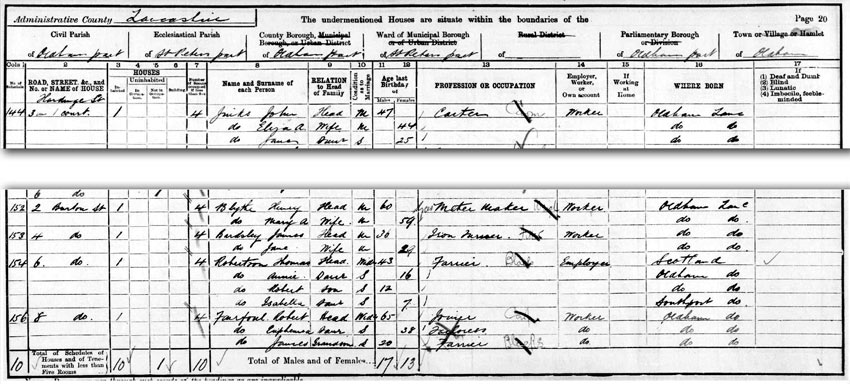 Administrative County Lancashire
The undermentioned Houses are situate within the boundaries of the
Page 20
Civil Parish
of Oldham part
Ecclesiastical Parish
of St Peters part
County Borough, Municipal Borough, or Urban District
of Oldham part
Ward of Municipal Borough or of Urban District
of St Peters part
Rural District
of
Parliamentary Borough or Division
of Oldham part
Town or Village or Hamlet
of Oldham
Cols 1 2 3 4 5 6 7 8 9 10 11 12 13 14 15 16 17
ROAD, STREET, &c., and No. or NAME of HOUSE
HOUSES
Uninhabited
Name and Surname of each Person
RELATION to Head of Family
Condition as to Marriage
Age last Birthday of
Males Females
PROFESSION OR OCCUPATION
Employer, Worker, or Own account
If Working at Home
WHERE BORN
(1) Deaf and Dumb
(2) Blind
(3) Lunatic
(4) Imbecile, feeble-minded
144 3 in 1 court. 1 4 John Head M 47 Carter Worker Oldham Lanc
do Eliza A. Wife M 44 do do
do Daur S 25 do do
6 do 1
152 2 Burton St 1 4 Henry Head M 60 Maker Worker Oldham Lanc
do Mary A. Wife M 59 do do
153 4 do 1 4 Bardsley James Head M 30 Iron Worker do do
do Jane Wife M 29 do do
154 6 do 1 4 Robertson Thomas Head 43 Farrier Employer Scotland
do Annie Daur S 16 Oldham do
do Robert Son S 12 do do
do Isabella Daur S 7 Southport do
156 8 do. 1 4 Fairfoul Robert Head 65 Joiner Worker Oldham do
do Euphemia Daur S 38 Tailoress do do do
do James Grandson S 20 Farrier do do do
10 Total of Schedules of Houses and of Tenements with less than Five Rooms 10 1 10 Total of Males and of Females... 17 13